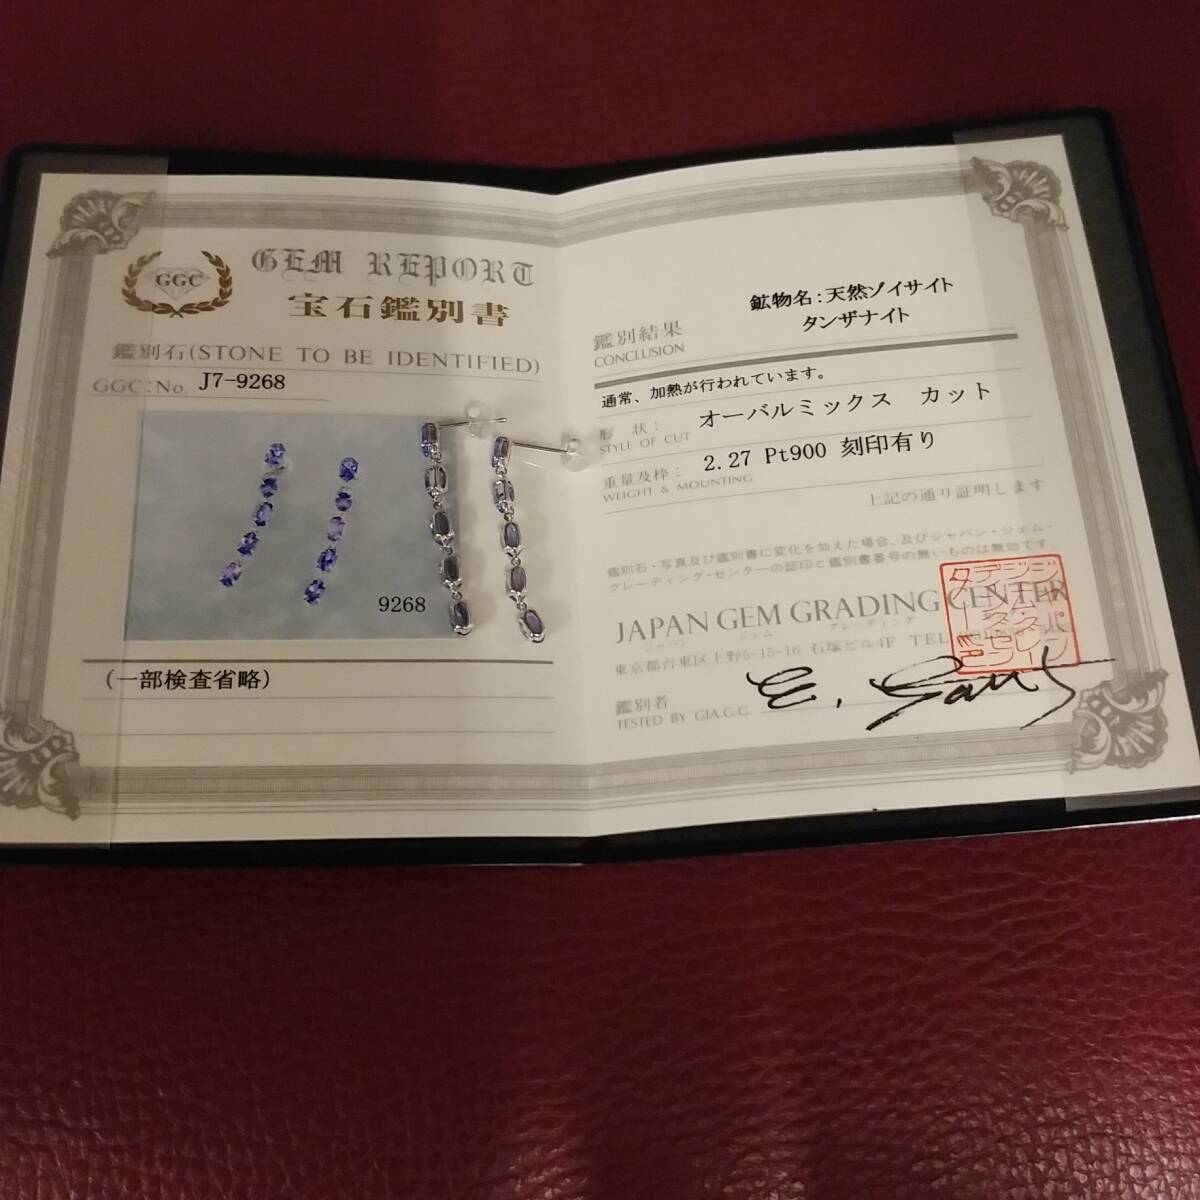 GGC
GEM REPORT
宝石鑑別書
鑑別石(STONE TO BE IDENTIFIED)
GGC:No. J7-9268
9268
(一部検査省略)
鑑別結果
CONCLUSION
鉱物名:天然ゾイサイト
タンザナイト
通常、加熱が行われています。
形 状:
STYLE OF CUT
オーバルミックス カット
重量及枠:
WEIGHT & MOUNTING
2.27 Pt900 刻印有り
上記の通り証明します
鑑別石・写真及び鑑別書に変化を加えた場合、及びジャパン・ジェム・
グレーディング・センターの認印と鑑別書番号の無いものは無効です。
JAPAN GEM GRADING CENTER
ジャパン ジェム グレーディング
東京都台東区上野5-15-16 石塚ビル4F TEL
鑑別者
TESTED BY GIA.G.G.